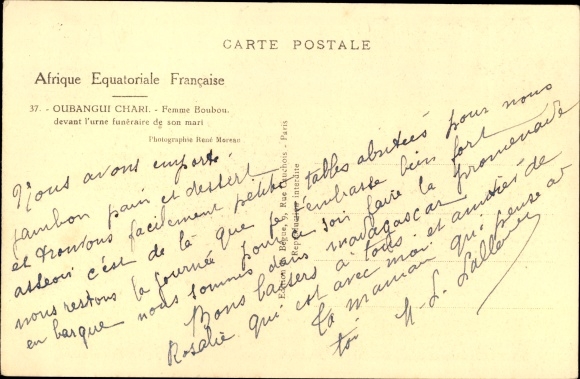 CARTE POSTALE
Afrique Equatoriale Française
37. - OUBANGUI CHARI. - Femme Boubou,
devant l'urne funéraire de son mari
Photographie René Moreau
Edition R. Bègue, 9, Rue Cauchois - Paris
Reproduction Interdite
Nous avons emporté
jambon pain et dessert
et trouvons facilement petites tables abritées pour nous
asseoir c'est de là que je t'embrasse bien fort
nous restons la journée pour ce soir faire la promenade
en barque nous sommes dans madagascar
Bons baisers à tous et amitiés de
Rosalie qui est avec moi
ta maman qui pense à
toi M-L. Lallemey